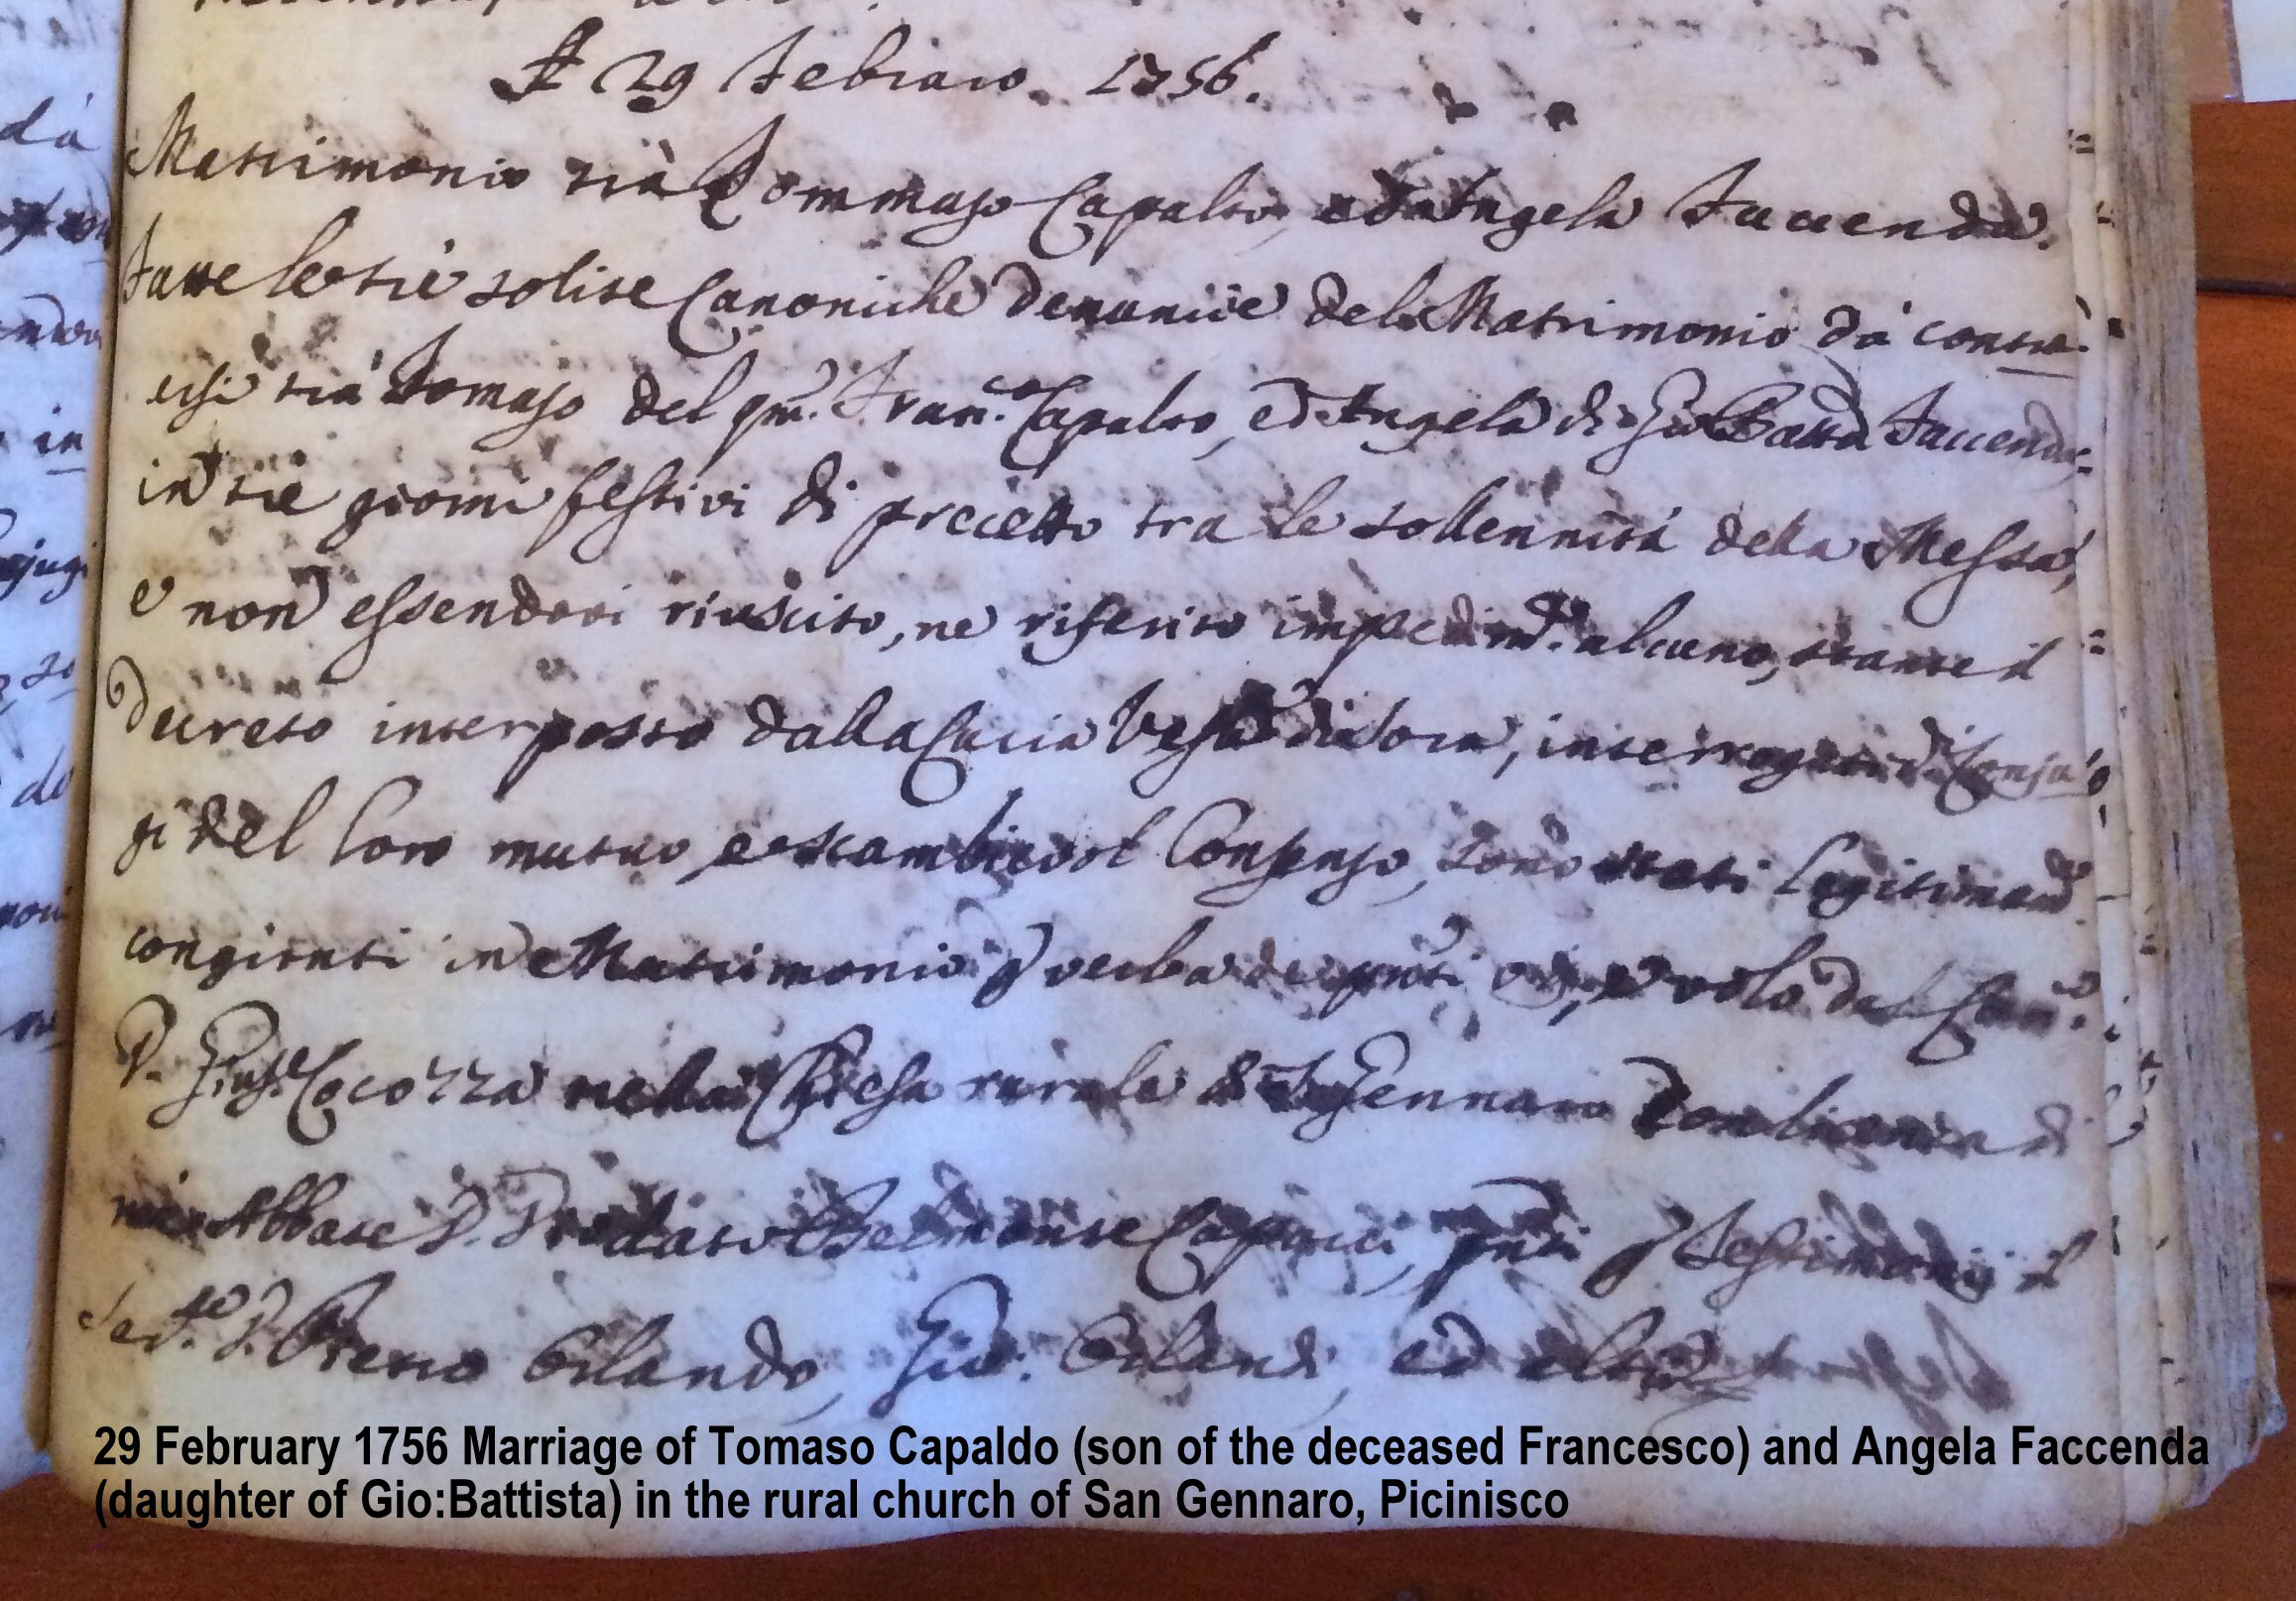 A 29 Febraro. 1756.
Matrimonio trà Tommaso Capalto, ed Angela Faccenda.
Fatte le trè solite Canoniche denuncie del Matrimonio dà contra-
ersi trà Tomaso del qm. Fran.co Capalto, ed Angela di Gio Batta Faccenda
in trè giorni festivi di precetto tra le sollennità della Messa,
e non essendovi riuscito, ne riferito impedimt.o alcuno, stante il
Decreto interposto dalla Curia Vesc. di Sora, interrogati di Conju-
gi del loro mutuo, e scambievol Consenso, sono stati legitimam.
congionti in Matrimonio p verba de pnti dal Can.co
D. Gius.e Cocozza nella Chiesa rurale di S. Gennaro con licenza di
me Abbate D. Belmonte Capocci, pnti p Testimonij il
Sed.e D. Pietro Orlando, Gio: Orlandi, ed altri
29 February 1756 Marriage of Tomaso Capaldo (son of the deceased Francesco) and Angela Faccenda
(daughter of Gio:Battista) in the rural church of San Gennaro, Picinisco